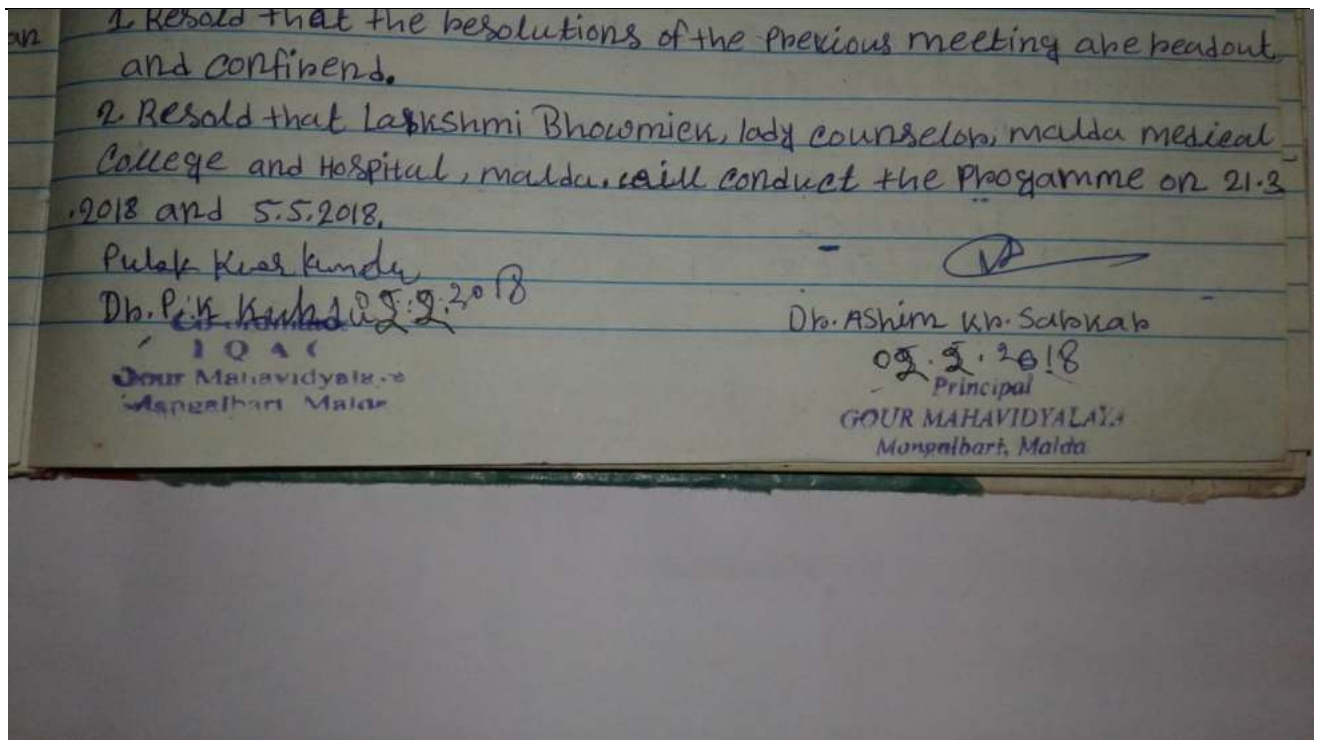 an
1. Resold that the besolutions of the previous meeting are readout
and confirend.
2. Resold that Lakshmi Bhowmick, lady counselor, malda medical
College and Hospital, malda. will conduct the Progamme on 21.3
.2018 and 5.5.2018.
Pulak Kundu
Dr. P.K. Kundu 2.2018
IQAC
Gour Mahavidyalaya
Mangalbari Malda
Dr. Ashim Kr. Sarkar
2.2018
Principal
GOUR MAHAVIDYALAYA
Mangalbari, Malda